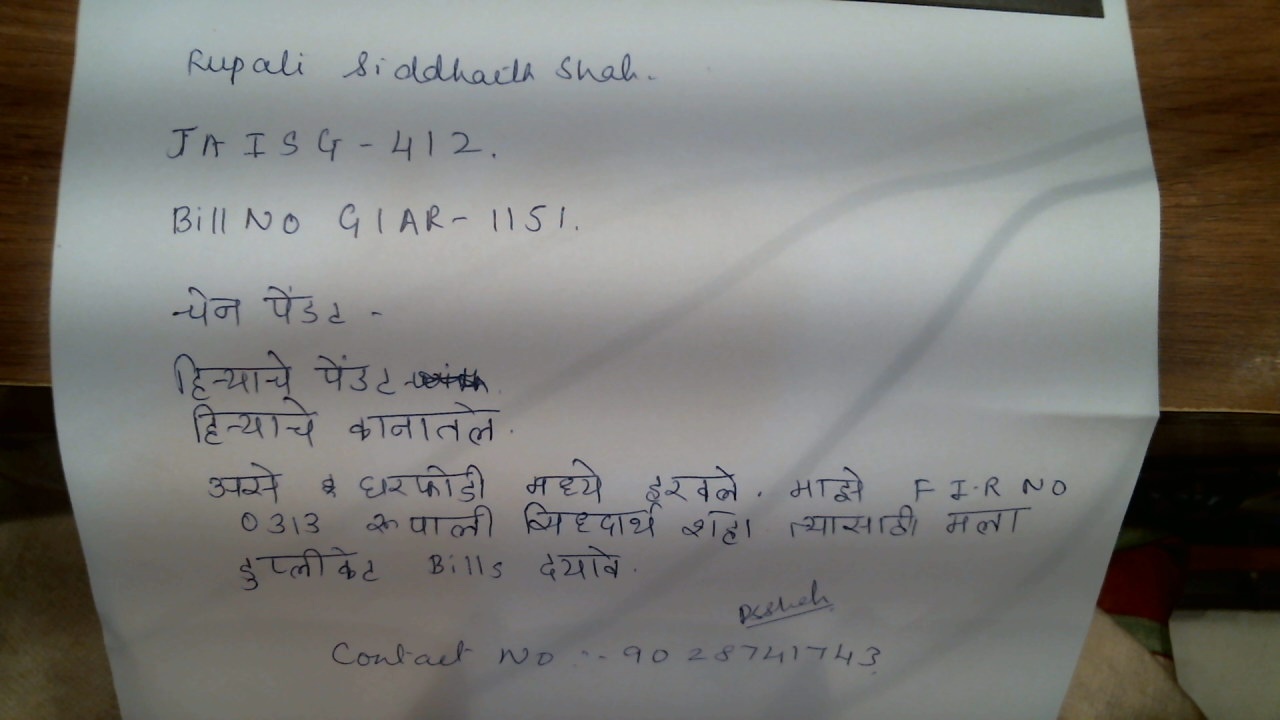 Rupali Siddharth Shah.
JAISG-412.
Bill No G1AR-1151.
चेन पेंडट -
हिऱ्याचे पेंडट
हिऱ्याचे कानातले.
असे घरफोडी मध्ये हरवले. माझे F I.R NO
0313 रूपाली सिध्दार्थ शहा त्यासाठी मला
डुप्लीकेट Bills दयावे.
RSShah
Contact No :- 9028741743